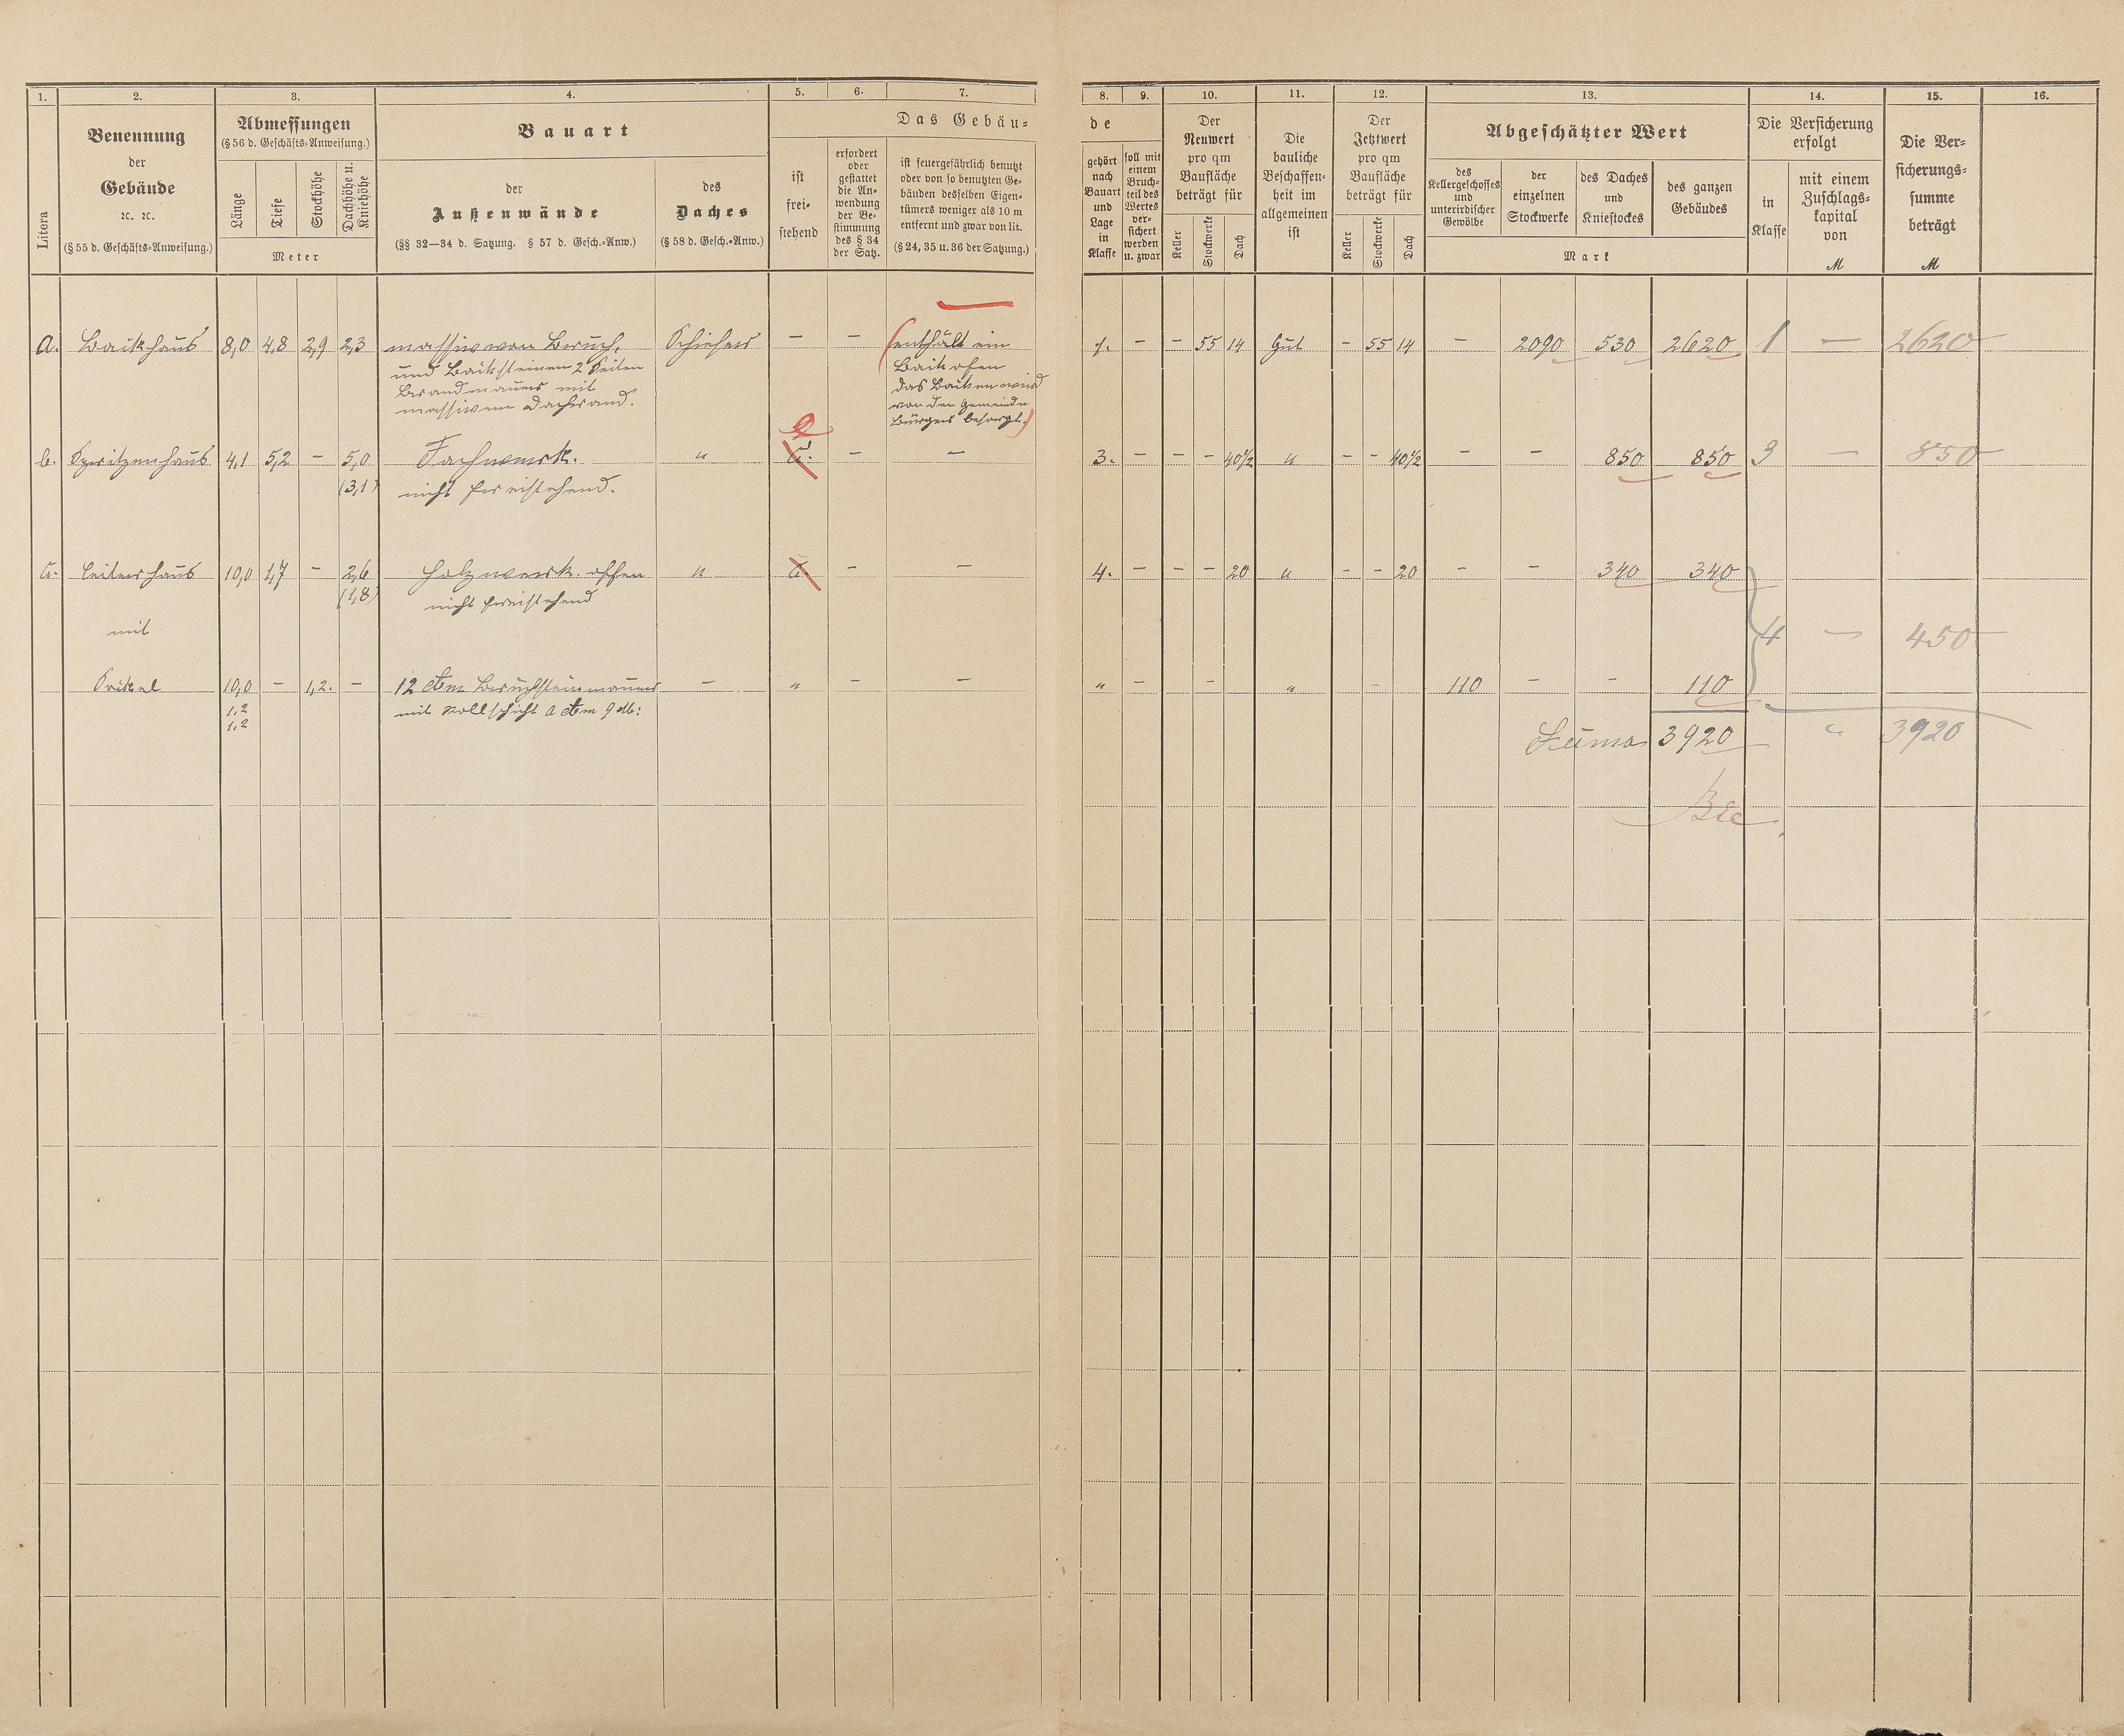 1. 2. 3. 4. 5. 6. 7. 8. 9. 10. 11. 12. 13. 14. 15. 16.
Litera
Benennung
der
Gebäude
ꝛc. ꝛc.
(§ 55 d. Geschäfts-Anweisung.)
Abmessungen
(§ 56 d. Geschäfts-Anweisung.)
Länge
Tiefe
Stockhöhe
Dachhöhe u.
Kniehöhe
Meter
Bauart
der
Außenwände
(§§ 32—34 d. Satzung. § 57 d. Gesch.-Anw.)
des
Daches
(§ 58 d. Gesch.-Anw.)
Das Gebäu-
ist
frei-
stehend
erfordert
oder
gestattet
die An-
wendung
der Be-
stimmung
des § 34
der Satz.
ist feuergefährlich benutzt
oder von so benutzten Ge-
bäuden desselben Eigen-
tümers weniger als 10 m
entfernt und zwar von lit.
(§ 24, 35 u. 36 der Satzung.)
de
gehört
nach
Bauart
und
Lage
in
Klasse
soll mit
einem
Bruch-
teil des
Wertes
ver-
sichert
werden
u. zwar
Der
Neuwert
pro qm
Baufläche
beträgt für
Keller
Stockwerke
Dach
Die
bauliche
Beschaffen-
heit im
allgemeinen
ist
Der
Jetztwert
pro qm
Baufläche
beträgt für
Keller
Stockwerke
Dach
Abgeschätzter Wert
des
Kellergeschosses
und
unterirdischer
Gewölbe
der
einzelnen
Stockwerke
des Daches
und
Kniestockes
des ganzen
Gebäudes
Mark
Die Versicherung
erfolgt
in
Klasse
mit einem
Zuschlags-
kapital
von
M
Die Ver-
sicherungs-
summe
beträgt
M
a. Backhaus 8,0 4,8 2,9 2,3 massiv von Bruch. Schiefer — — (enthält ein 1. — — 55 14 Gut — 55 14 — 2090 530 2620 1 — 2620
und Backsteinen 2 Seiten Backofen
Brandmauer mit das Backen wird
massivem Dachrand. von den Gemeinde
Bürger besorgt.)
b. Spritzenhaus 4,1 5,2 — 5,0 Fachwerk. " — — 3. — — — 40½ " — — 40½ — — 850 850 3 — 850
(3,1) nicht freistehend.
c. Leiterhaus 10,0 1,7 — 2,6 Holzwerk. offen " — — 4. — — — 20 " — — 20 — — 340 340
(1,8) nicht freistehend
mit 4 — 450
Sockel 10,0 — 1,2. — 12 cbm Bruchsteinmauer — " — — " — — " — 110 — — 110
1,2 mit Rollschicht a cbm 9 M:
1,2
Suma 3920 " 3920